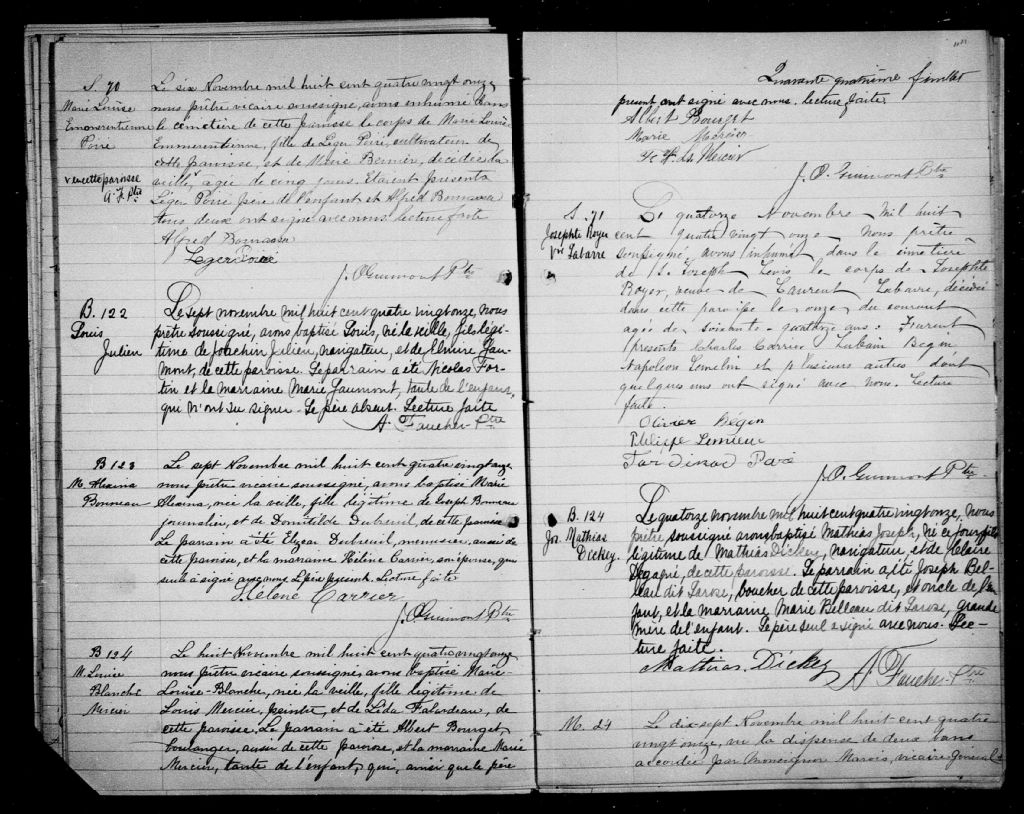 S. 70
Marie Louise
Emerentienne
Poiré
de cette paroisse
A. F. Ptre
Le six Novembre mil huit cent quatre vingt onze
nous prêtre vicaire soussigné, avons inhumé dans
le cimetière de cette paroisse le corps de Marie Louise
Emmerentienne, fille de Léger Poiré, cultivateur de
cette paroisse, et de Marie Bernier, décédée la
veille, agée de cinq jours. Etaient présents
Léger Poiré père de l'enfant et Alfred Bonnassa
tous deux ont signé avec nous lecture faite
Alfred Bonnassa
Leger Poiré
J. O Guimont Ptre
B. 122
Louis
Julien
Le sept novembre mil huit cent quatre vingt onze, nous
prêtre soussigné, avons baptisé Louis, né la veille, fils légi-
time de Joachin Julien, navigateur, et de Elmire Jau-
mont, de cette paroisse. Le parrain a été Nicolas For-
tin et la marraine Marie Jaumont, tante de l'enfant,
qui n'ont su signer. Le père absent. Lecture faite
A. Faucher Ptre
B 123
M. Alexina
Bonneau
Le sept Novembre mil huit cent quatre vingt onze
nous prêtre vicaire soussigné, avons baptisé Marie
Alexina, née la veille, fille légitime de Joseph Bonneau
journalier, et de Domitilde Dubreuil, de cette paroisse
Le parrain a été Elzear Dubreuil, menuisier, aussi de
cette paroisse, et la marraine Hélène Carrier, son épouse, qui
seule a signé avec nous. Le père présent. Lecture faite
Hélène Carrier
J. O Guimont Ptre
B 124
M. Louise
Blanche
Mercier
Le huit Novembre mil huit cent quatre vingt onze
nous prêtre vicaire soussigné, avons baptisé Marie-
Louise-Blanche, née la veille, fille légitime de
Louis Mercier, peintre, et de Lida Falardeau, de
cette paroisse. Le parrain a été Albert Bourget,
boulanger, aussi de cette paroisse, et la marraine Marie
Mercier, tante de l'enfant, qui, ainsi que le père
Quarante quatrième feuillet
présent ont signé avec nous. lecture faite
Albert Bourget
Marie Mercier
Ls Mercier
J. O. Guimont Ptre
S. 71
Josephte Royer
Vve Labarre
Le quatorze Novembre mil huit
cent quatre vingt onze nous prêtre
soussigné, avons inhumé dans le cimetière
de St. Joseph Levis le corps de Josephte
Royer, veuve de Laurent Labarre, décédée
dans cette paroisse le onze du courant
agée de soixante-quatorze ans. Furent
présents Charles Carrier Lubain Begin
Napoléon Lemelin et plusieurs autres dont
quelques uns ont signé avec nous. Lecture
faite.
Olivier Bégin
Philippe Lemieux
Ferdinand Paré
J. O. Guimont Ptre
B. 124
Jos. Mathias
Dickey
Le quatorze novembre mil huit cent quatre vingt onze, nous
prêtre soussigné avons baptisé Mathias Joseph, né ce jour, fils
légitime de Mathias Dickey, navigateur, et de Claire
Degagné, de cette paroisse. Le parrain a été Joseph Bel-
leau dit Larose, boucher de cette paroisse, et oncle de l'en-
fant, et la marraine Marie Belleau dit Larose, grande
mère de l'enfant. Le père seul a signé avec nous. Lec-
ture faite.
Mathias Dickey
A Faucher Ptre
M. 24
Le dix-sept Novembre mil huit cent quatre
vingt onze, vu la dispense de deux bans
accordée par Monseigneur Marois, vicaire Général